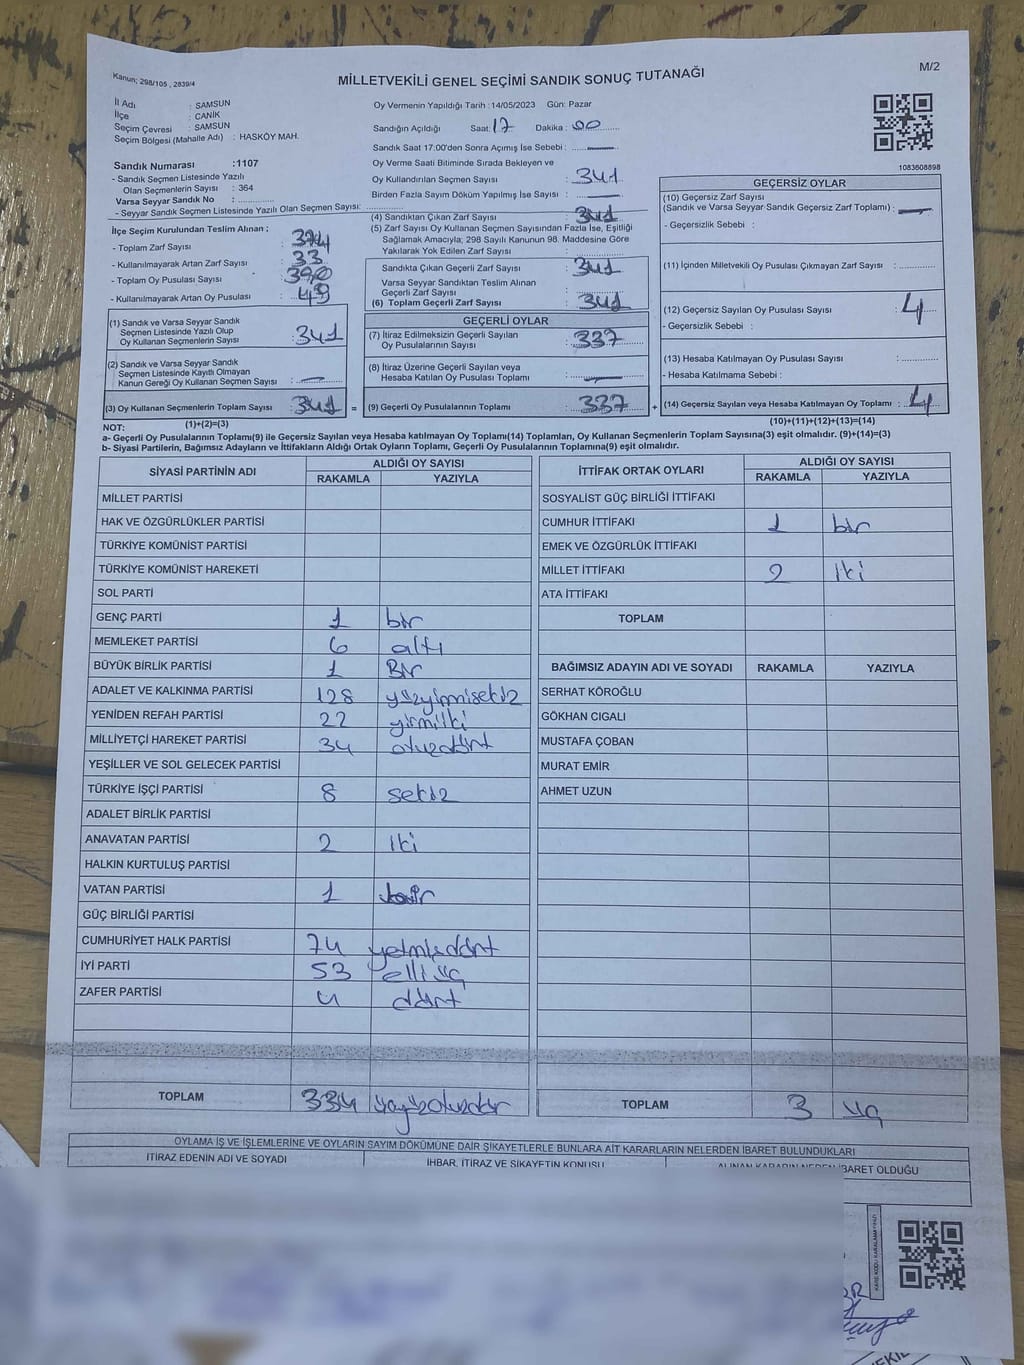 Kanun; 298/105 , 2839/4
M/2
MİLLETVEKİLİ GENEL SEÇİMİ SANDIK SONUÇ TUTANAĞI
İl Adı : SAMSUN
İlçe : CANİK
Seçim Çevresi : SAMSUN
Seçim Bölgesi (Mahalle Adı) : HASKÖY MAH.
Sandık Numarası :1107
- Sandık Seçmen Listesinde Yazılı
Olan Seçmenlerin Sayısı : 364
Varsa Seyyar Sandık No :
- Seyyar Sandık Seçmen Listesinde Yazılı Olan Seçmen Sayısı:
İlçe Seçim Kurulundan Teslim Alınan ;
- Toplam Zarf Sayısı : 374
- Kullanılmayarak Artan Zarf Sayısı : 33
- Toplam Oy Pusulası Sayısı : 390
- Kullanılmayarak Artan Oy Pusulası : 49
(1) Sandık ve Varsa Seyyar Sandık
Seçmen Listesinde Yazılı Olup
Oy Kullanan Seçmenlerin Sayısı : 341
(2) Sandık ve Varsa Seyyar Sandık
Seçmen Listesinde Kayıtlı Olmayan
Kanun Gereği Oy Kullanan Seçmen Sayısı : —
(3) Oy Kullanan Seçmenlerin Toplam Sayısı : 341
(1)+(2)=(3)
Oy Vermenin Yapıldığı Tarih :14/05/2023 Gün: Pazar
Sandığın Açıldığı Saat: 17 Dakika : 00
Sandık Saat 17:00'den Sonra Açımış İse Sebebi : —
Oy Verme Saati Bitiminde Sırada Bekleyen ve
Oy Kullandırılan Seçmen Sayısı : 341
Birden Fazla Sayım Döküm Yapılmış İse Sayısı : —
(4) Sandıktan Çıkan Zarf Sayısı : 341
(5) Zarf Sayısı Oy Kullanan Seçmen Sayısından Fazla İse, Eşitliği
Sağlamak Amacıyla; 298 Sayılı Kanunun 98. Maddesine Göre
Yakılarak Yok Edilen Zarf Sayısı :
Sandıkta Çıkan Geçerli Zarf Sayısı : 341
Varsa Seyyar Sandıktan Teslim Alınan
Geçerli Zarf Sayısı :
(6) Toplam Geçerli Zarf Sayısı : 341
GEÇERLİ OYLAR
(7) İtiraz Edilmeksizin Geçerli Sayılan
Oy Pusulalarının Sayısı : 337
(8) İtiraz Üzerine Geçerli Sayılan veya
Hesaba Katılan Oy Pusulası Toplamı : —
= (9) Geçerli Oy Pusulalarının Toplamı : 337
1083608898
GEÇERSİZ OYLAR
(10) Geçersiz Zarf Sayısı
(Sandık ve Varsa Seyyar Sandık Geçersiz Zarf Toplamı) : —
- Geçersizlik Sebebi :
(11) İçinden Milletvekili Oy Pusulası Çıkmayan Zarf Sayısı :
(12) Geçersiz Sayılan Oy Pusulası Sayısı : 4
- Geçersizlik Sebebi :
(13) Hesaba Katılmayan Oy Pusulası Sayısı :
- Hesaba Katılmama Sebebi :
+ (14) Geçersiz Sayılan veya Hesaba Katılmayan Oy Toplamı : 4
(10)+(11)+(12)+(13)=(14)
NOT:
a- Geçerli Oy Pusulalarının Toplamı(9) ile Geçersiz Sayılan veya Hesaba katılmayan Oy Toplamı(14) Toplamları, Oy Kullanan Seçmenlerin Toplam Sayısına(3) eşit olmalıdır. (9)+(14)=(3)
b- Siyasi Partilerin, Bağımsız Adayların ve İttifakların Aldığı Ortak Oyların Toplamı, Geçerli Oy Pusulalarının Toplamına(9) eşit olmalıdır.
SİYASİ PARTİNİN ADI ALDIĞI OY SAYISI
RAKAMLA YAZIYLA
MİLLET PARTİSİ
HAK VE ÖZGÜRLÜKLER PARTİSİ
TÜRKİYE KOMÜNİST PARTİSİ
TÜRKİYE KOMÜNİST HAREKETİ
SOL PARTİ
GENÇ PARTİ 1 bir
MEMLEKET PARTİSİ 6 altı
BÜYÜK BİRLİK PARTİSİ 1 Bir
ADALET VE KALKINMA PARTİSİ 128 yüzyirmisekiz
YENİDEN REFAH PARTİSİ 22 yirmiiki
MİLLİYETÇİ HAREKET PARTİSİ 34 otuzdört
YEŞİLLER VE SOL GELECEK PARTİSİ
TÜRKİYE İŞÇİ PARTİSİ 8 sekiz
ADALET BİRLİK PARTİSİ
ANAVATAN PARTİSİ 2 iki
HALKIN KURTULUŞ PARTİSİ
VATAN PARTİSİ 1 bir
GÜÇ BİRLİĞİ PARTİSİ
CUMHURİYET HALK PARTİSİ 74 yetmişdört
İYİ PARTİ 53 elli üç
ZAFER PARTİSİ 4 dört
TOPLAM 334 üçyüzotuzdör
İTTİFAK ORTAK OYLARI ALDIĞI OY SAYISI
RAKAMLA YAZIYLA
SOSYALİST GÜÇ BİRLİĞİ İTTİFAKI
CUMHUR İTTİFAKI 1 bir
EMEK VE ÖZGÜRLÜK İTTİFAKI
MİLLET İTTİFAKI 2 iki
ATA İTTİFAKI
TOPLAM
BAĞIMSIZ ADAYIN ADI VE SOYADI RAKAMLA YAZIYLA
SERHAT KÖROĞLU
GÖKHAN CIGALI
MUSTAFA ÇOBAN
MURAT EMİR
AHMET UZUN
TOPLAM 3 üç
OYLAMA İŞ VE İŞLEMLERİNE VE OYLARIN SAYIM DÖKÜMÜNE DAİR ŞİKAYETLERLE BUNLARA AİT KARARLARIN NELERDEN İBARET BULUNDUKLARI
İTİRAZ EDENİN ADI VE SOYADI İHBAR, İTİRAZ VE ŞİKAYETİN KONUSU ALINAN KARARIN NEDEN İBARET OLDUĞU